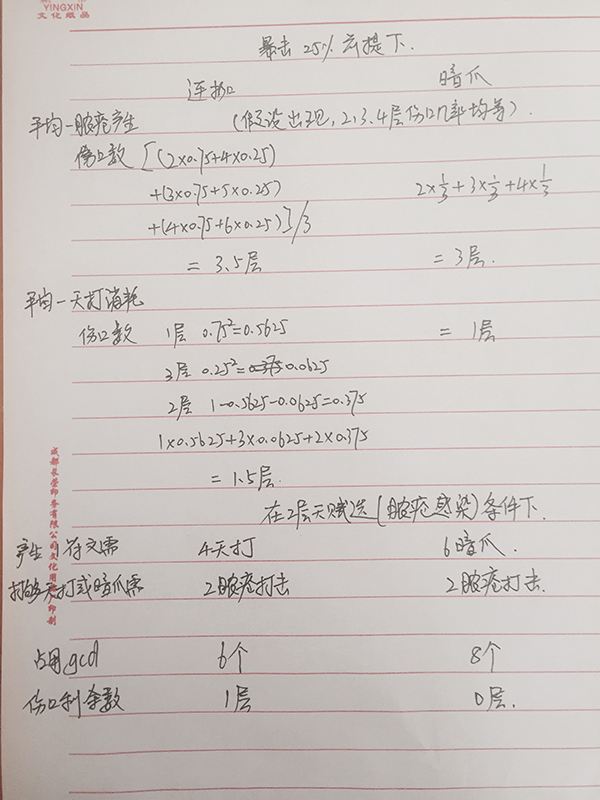 YINGXIN
文化纸品
暴击 25% 前提下.
连扬 暗爪
平均一脓疮产生 (假设出现,2,3,4层伤口几率均等).
伤口数 [(2×0.75+4×0.25)
+(3×0.75+5×0.25) 2×1/3+3×1/3+4×1/3
+(4×0.75+6×0.25)]/3
= 3.5层 = 3层.
平均一天打消耗
伤口数 1层 0.75²=0.5625 = 1层
3层 0.25²=0.0625
2层 1-0.5625-0.0625=0.375
1×0.5625+3×0.0625+2×0.375
= 1.5层.
在2层天赋选(脓疮感染)条件下.
产生1符文需 4天打 6暗爪.
打够天打或暗爪需 2脓疮打击 2脓疮打击.
占用gcd 6个 8个
伤口剩余数 1层 0层.
成都长荣印务有限公司文化用品 印制